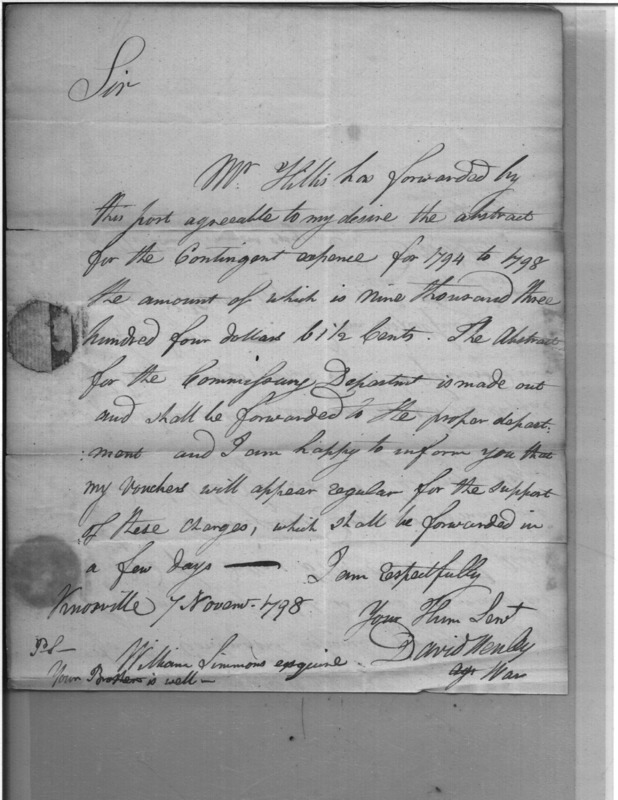 Sir
Mr. Hillis has forwarded by
this post agreeable to my desire the abstract
for the Contingent expence for 1794 to 1798
the amount of which is nine thousand three
hundred four dollars 61½ Cents. The Abstract
for the Commissary Departmt is made out
and shall be forwarded to the proper depart:
:ment and I am happy to inform you that
my Vouchers will appear regular for the support
of these charges, which shall be forwarded in
a few days — I am respectfully
Knoxville 7 Novemr. 1798
Your Hum Servt
David Henley
agt War
William Simmons esquire.
PS—
Your Brother is well—